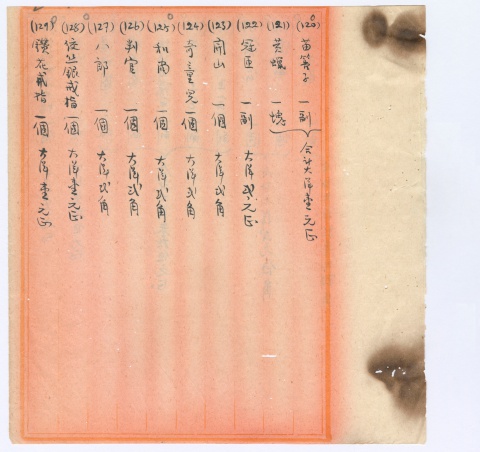 (120) 苗箐子 一副
(121) 芸蠟 一塊
合計大洋壹元正
(122) 冠匣 一副 大洋弍元正
(123) 開山 一個 大洋弍角
(124) 奇童兒 一個 大洋弍角
(125) 和尚 一個 大洋弍角
(126) 判官 一個 大洋弍角
(127) 八郎 一個 大洋弍角
(128) 位上銀戒指 一個 大洋壹元正
(129) 鑽花戒指 一個 大洋壹元正